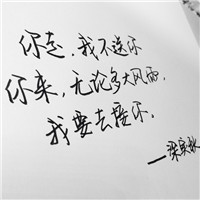 你走,我不送你
你来,无论多大风雨,
我要去接你.
—梁实秋